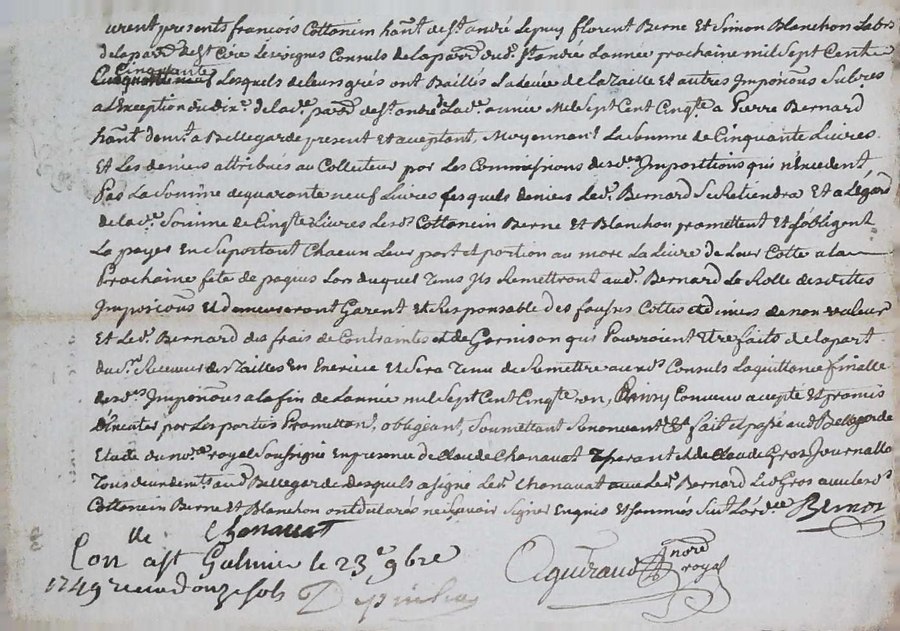 urent presents francois Cottancin hant de st andré Lepuy florent Berne Et Simon Blanchon Labrs
dela parr. de st Cire Lesvignes Consuls de la parr. dud. st andré Lannée prochaine mil Sept Cent
Cinquante
Lesquels de leurs grés ont Baillés La levée de la Taille et autres Imposions
a L'Exception du dixe. de lad. parr. de st andré Lad. année Mil Sept Cent Cinqte. a Pierre Bernard
hant domt. a Bellegarde present Et acceptant, Moyennant La Somme de Cinquante Livres
Et Les deniers attribués au Collecteur por Les Commissions desd. Impositions qui n'Excedent
Pas La Somme de quarante neuf Livres Lesquels deniers Led. Bernard Se Retiendra Et a L'Egard
de lad. Somme de Cinqte Livres Lesd. Cottancin Berne Et Blanchon promettent Et s'obligent
La payer En Suportant Chacun Leur part et portion au marc La Livre de Leur Cotte a la
Prochaine fete de paques Lors duquel Tems Ils Remettront aud. Bernard Le Rolle desdittes
Imposions Et demeureront Garent Et Responsable des fausses Cottes et deniers de non valeur
Et Led. Bernard des frais de Contraintes et de Garnison qui Pourroient Etre faits de la part
du Sr. Receveur des Tailles En Exercice Et Sera Tenu de Remettre auxd. Consuls La quittance finalle
desd. Imposions a la fin de L'année mil Sept Cent Cinqte un, Ainsy Convenu accepté Et promis
par Les parties Promettant, obligeant, Soummettant Renonceant &c fait Et passé aud Bellegarde
Etude du not. royal Soussigné En presence de Claude Chanavat Et de Claude Gros Journallier
Tous deux aud Bellegarde desquels a signé Led. Chanavat avec Led. Bernard Led Gros avec Lesd.
Cottancin Berne Et Blanchon ont declarés ne Scavoir Signer Enquis Et Sommés Suivt L'ordce
Bernor
Chanavat
Conlle a st Galmier le 23e 9bre
1749 recu douze sols
Aguiraud Nore royal